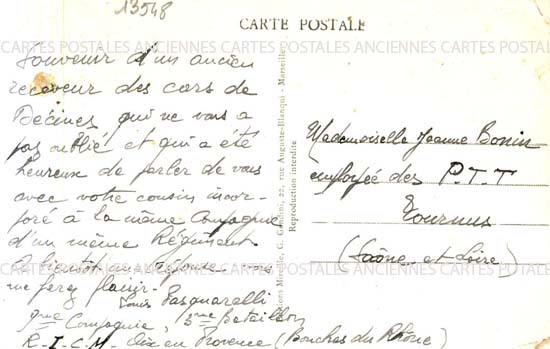 13548
CARTE POSTALE
CARTES POSTALES ANCIENNES CARTES POSTALES ANCIENNES CARTES POSTALES
Souvenir d'un ancien
receveur des cars de
Décines qui ne vous a
pas oublié et qui a été
heureux de parler de vous
avec votre cousin incor-
poré à la même Compagnie
d'un même Régiment
A bientôt une réponse vous
me ferez plaisir
Louis Pasquarelli
9me Compagnie, 3me Bataillon
R-I-C-M- Aix en Provence (Bouches du Rhône)
22, rue Auguste-Blanqui - Marseille
Reproduction interdite
Mademoiselle Jeanne Bonin
employée des P.T.T
Tournus
(Saône et Loire)